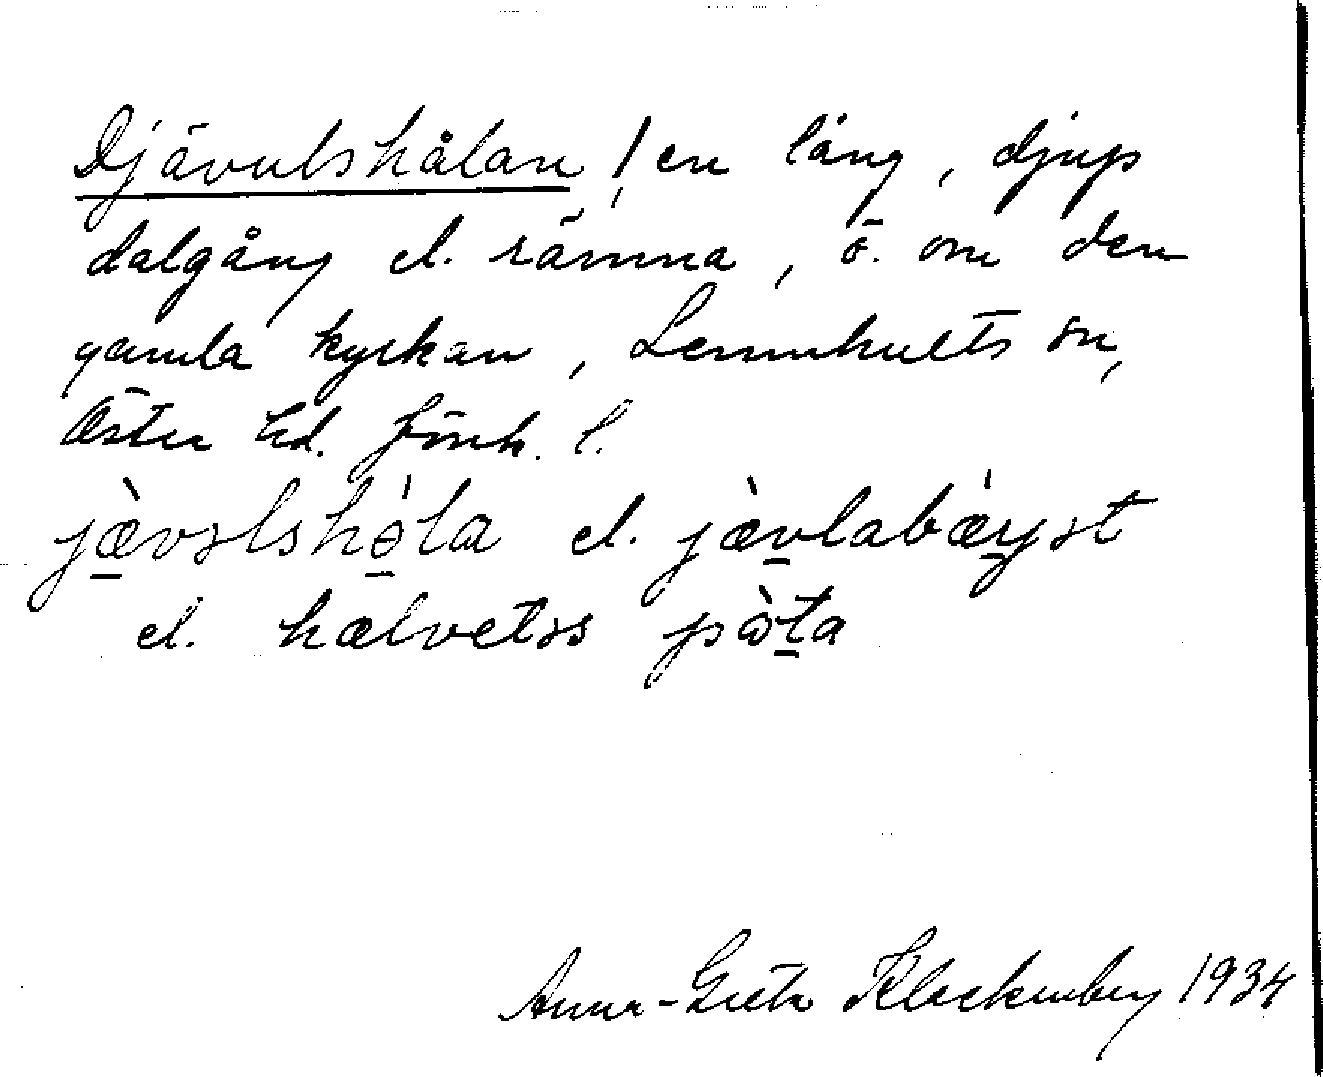 Djävulshålan / en lång, djup
dalgång el. rämna, ö. om den
gamla kyrkan, Lemnhults sn,
Öster hd. Jönk. l.
jæ̀vəlshòla el. jæ̀vlabæ̀ŋət
el. hælvetəs pòta
Anna-Greta Klockenberg 1934